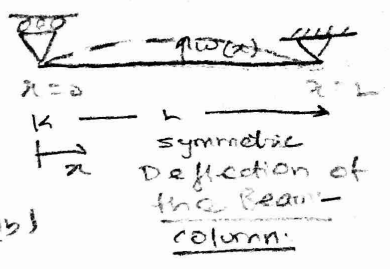 w(x)
x=0 x=L
L
x
symmetric
Deflection of
the Beam-
column.
b)